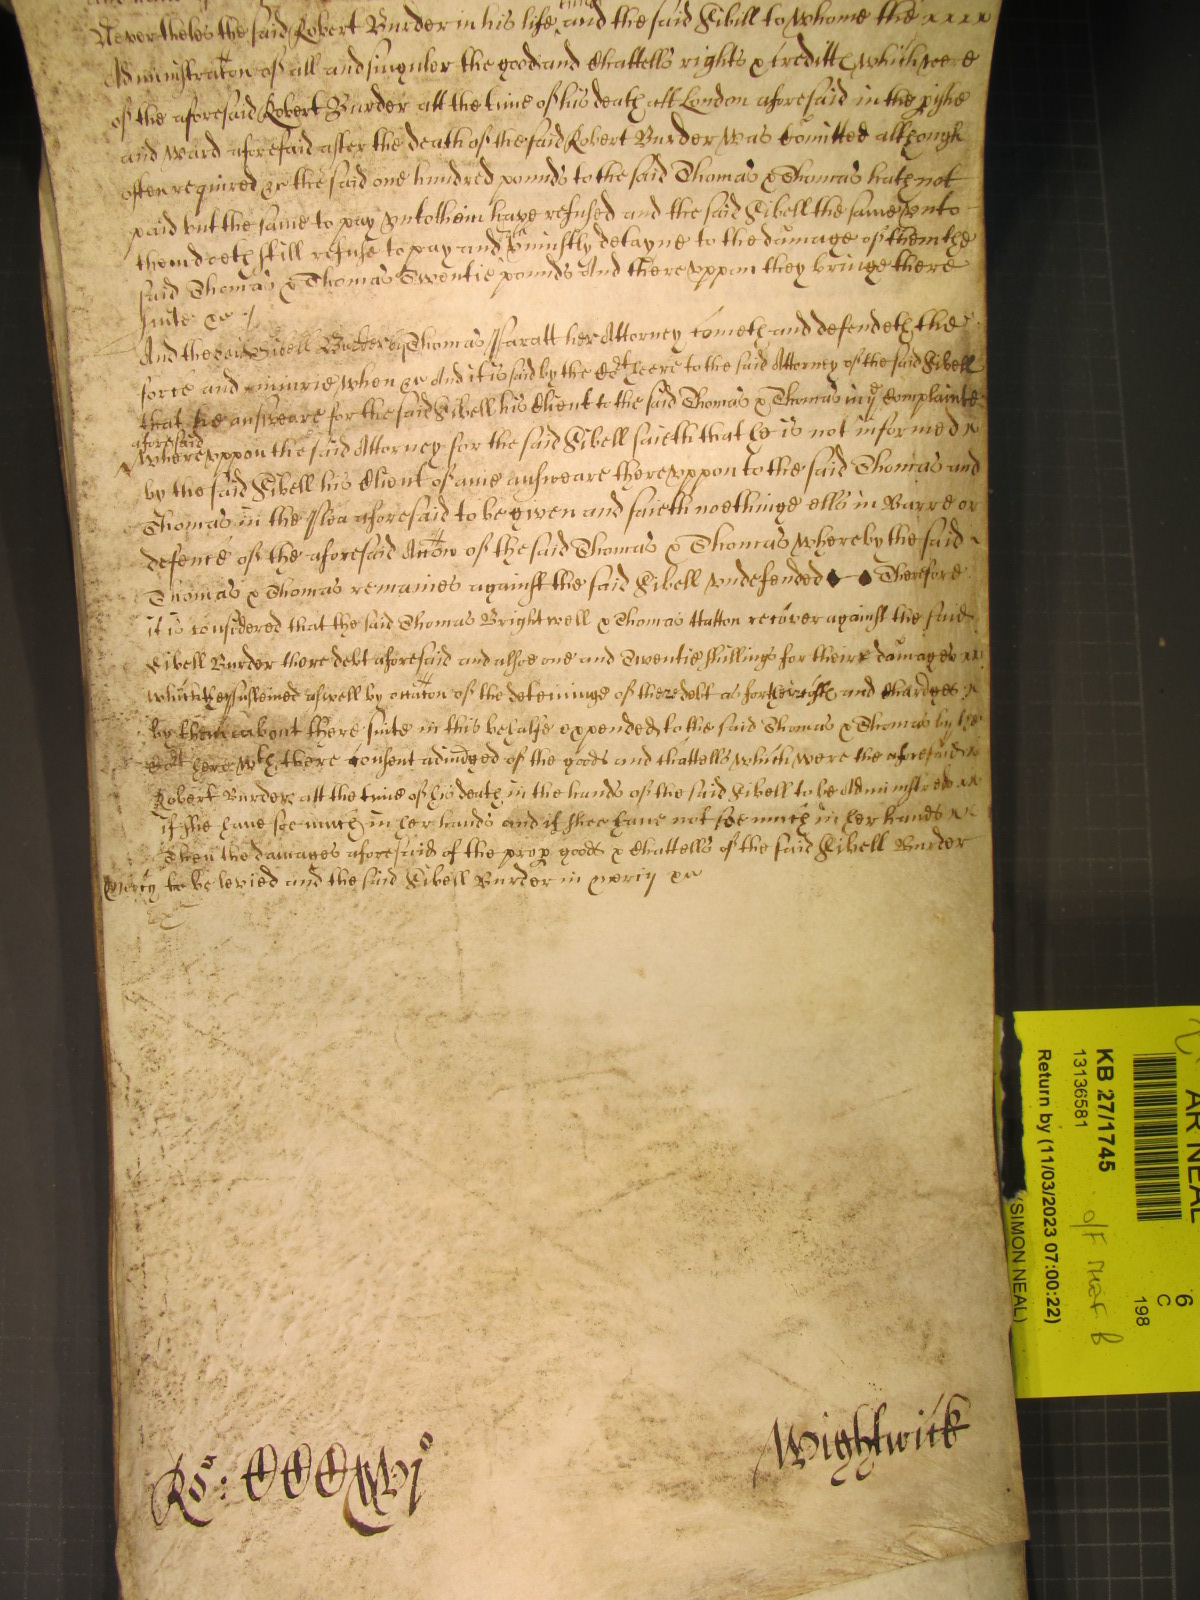 Neverthelesse the said Robert Burder in his life time and the said Sibill to whome the
Administraton of all and singuler the good and Chattells rights & Creditts which were
of the aforesaid Robert Burder att the time of his death att London aforesaid in the pishe
and Ward aforesaid after the death of the said Robert Burder was comitted although
often required &c the said one hundred pounds to the said Thomas & Thomas hath not
paid but the same to pay unto them have refused and the said Sibell the same unto
them doeth still refuse to pay and uniustly detayne to the damage of them the
said Thomas & Thomas Twentie pounds And thereuppon they bringe there
suite &c
And the said Sibell Burder by Thomas Paratt her Attorney cometh and defendeth the
force and iniurie when &c And it is said by the Cort heere to the said Attorney of the said Sibell
that hee answeare for the said Sibell his Client to the said Thomas & Thomas in ye Complainte
aforesaid
whereuppon the said Attorney for the said Sibell saieth that he is not informed
by the said Sibell his Client of anie answeare thereuppon to the said Thomas and
Thomas in the Plea aforesaid to be given and saieth noethinge ells in Barre or
defence of the aforesaid Accon of the said Thomas & Thomas whereby the said
Thomas & Thomas remaines against the said Sibell undefended Therefore
it is considered that the said Thomas Brightwell & Thomas Hatton recover against the said
Sibell Burder there debt aforesaid and alsoe one and Twentie shillings for their damages
which they susteined aswell by occaton of the deteininge of there debt as for their costs and Chardges
by them about there suite in this behalfe expended to the said Thomas & Thomas by the
Cort here wth there Consent adiudged of the goods and chattells which were the aforesaid
Robert Burder att the time of his death in the hands of the said Sibell to be Administred
if she have soe much in her hands and if shee have not soe much in her hands
Then the damages aforesaid of the prop goods & Chattells of the said Sibell Burder
Mercy to be levied and the said Sibell Burder in mercy &c
Ro: CCCxvjo
Wightwick
KB 27/1745
13136581
Return by (11/03/2023 07:00:22)
(SIMON NEAL)
6
C
198